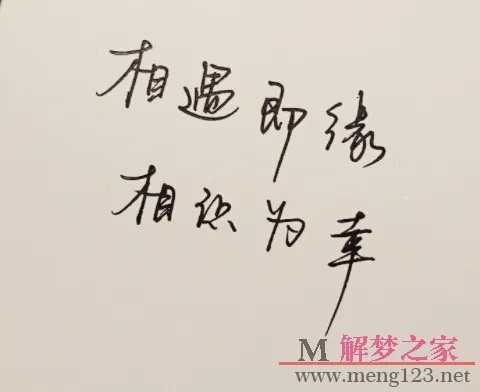 相遇即缘
相识为幸
M 解梦之家
www.meng123.net